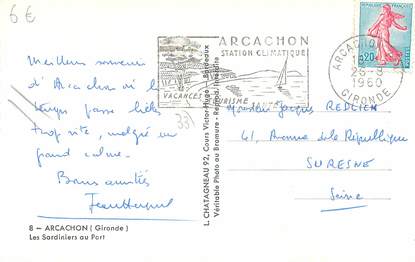 6€
Meilleurs souvenirs
d'Arcachon où le
temps passe hélas
trop vite, malgré un
grand calme.
Bonnes amitiés
8 — ARCACHON (Gironde)
Les Sardiniers au Port
L. CHATAGNEAU 92, Cours Victor-Hugo - Bordeaux
Véritable Photo au Bromure - Reprod. Interdite
ARCACHON
STATION CLIMATIQUE
VACANCES
TOURISME
ARCACHON
1960
GIRONDE
0,20
Monsieur Jacques REDLICH
41, Avenue de la République
SURESNE
Seine